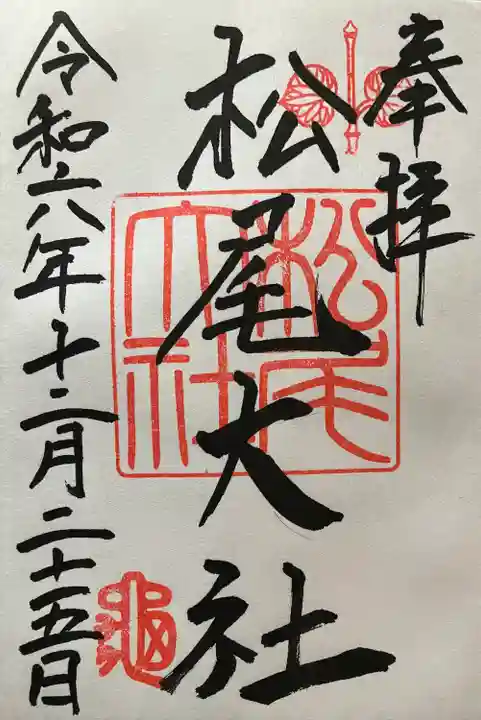 奉拝
松尾大社
松尾大社
令和六年十二月二十五日
亀